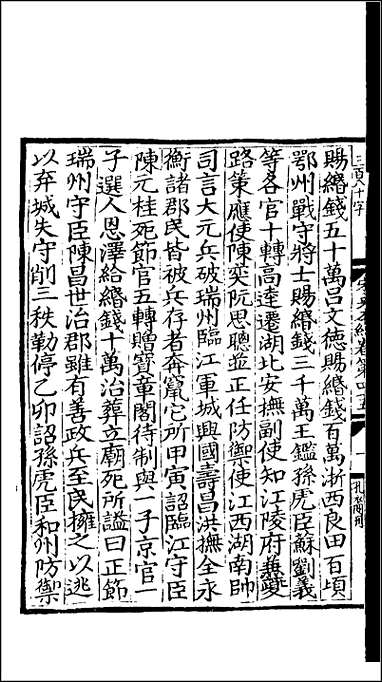 三百八十字
宋史本紀卷第四十五
孔
賜緡錢五十萬呂文德賜緡錢百萬浙西良田百頃
鄂州戰守將士賜緡錢三千萬王鑑孫虎臣蘇劉義
等各官十轉高達遷湖北安撫副使知江陵府兼夔
路策應使陳奕阮思聰並正任防禦使江西湖南帥
司言大元兵破瑞州臨江軍城興國壽昌洪撫全永
衡諸郡民皆被兵存者奔竄它所甲寅詔臨江守臣
陳元桂死節官五轉贈寶章閣待制與一子京官一
子選人恩澤給緡錢十萬治葬立廟死所謚曰正節
瑞州守臣陳昌世治郡雖有善政兵至民擁之以逃
以弃城失守削三秩勒停乙卯詔孫虎臣和州防禦